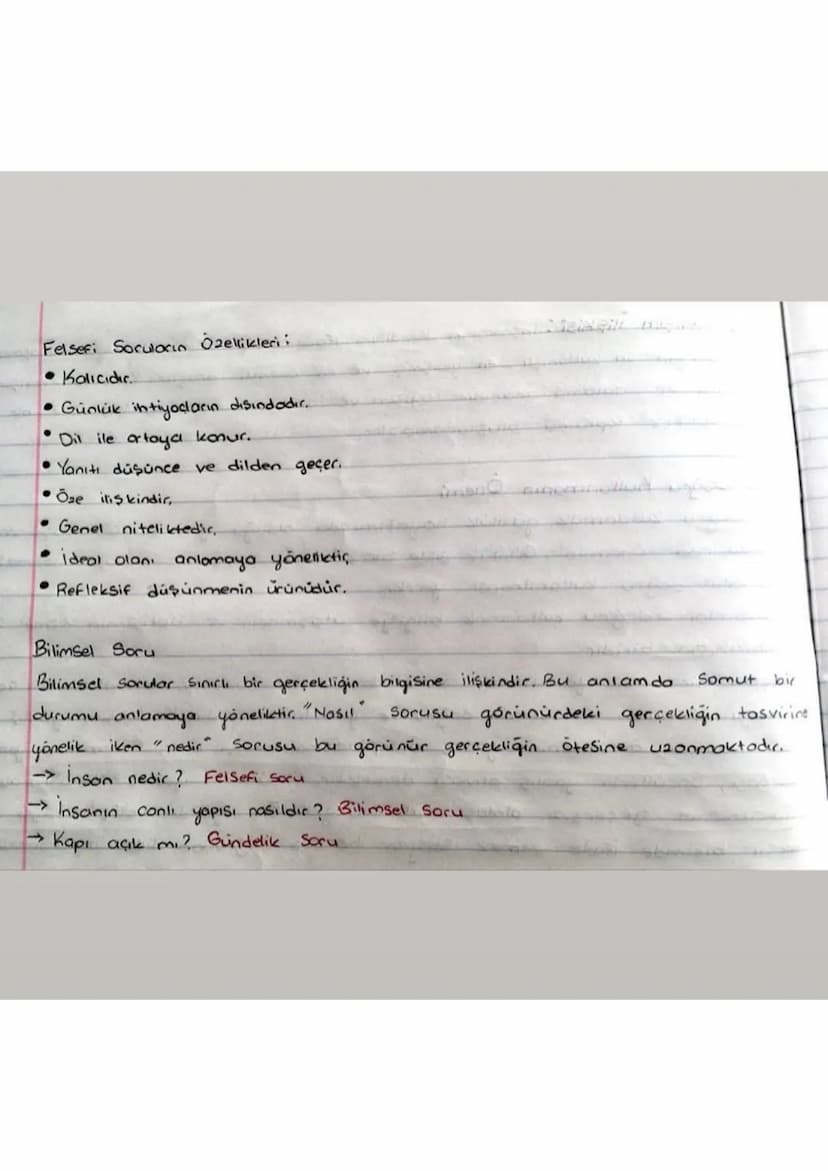 Felsefi Soruların Özellikleri:
• Kalıcıdır.
• Günlük ihtiyaçların dışındadır.
• Dil ile ortaya konur.
• Yanıtı düşünce ve dilden geçer.
• Öze ilişkindir.
• Genel niteliktedir.
• İdeal olanı anlamaya yöneliktir.
• Refleksif düşünmenin ürünüdür.
Bilimsel Soru
Bilimsel sorular sınırlı bir gerçekliğin bilgisine ilişkindir. Bu anlamda somut bir
durumu anlamaya yöneliktir. "Nasıl" sorusu görünürdeki gerçekliğin tasvirine
yönelik iken "nedir" sorusu bu görünür gerçekliğin ötesine uzanmaktadır.
→ İnsan nedir? Felsefi soru
→ İnsanın canlı yapısı nasıldır? Bilimsel Soru
→ Kapı açık mı? Gündelik Soru